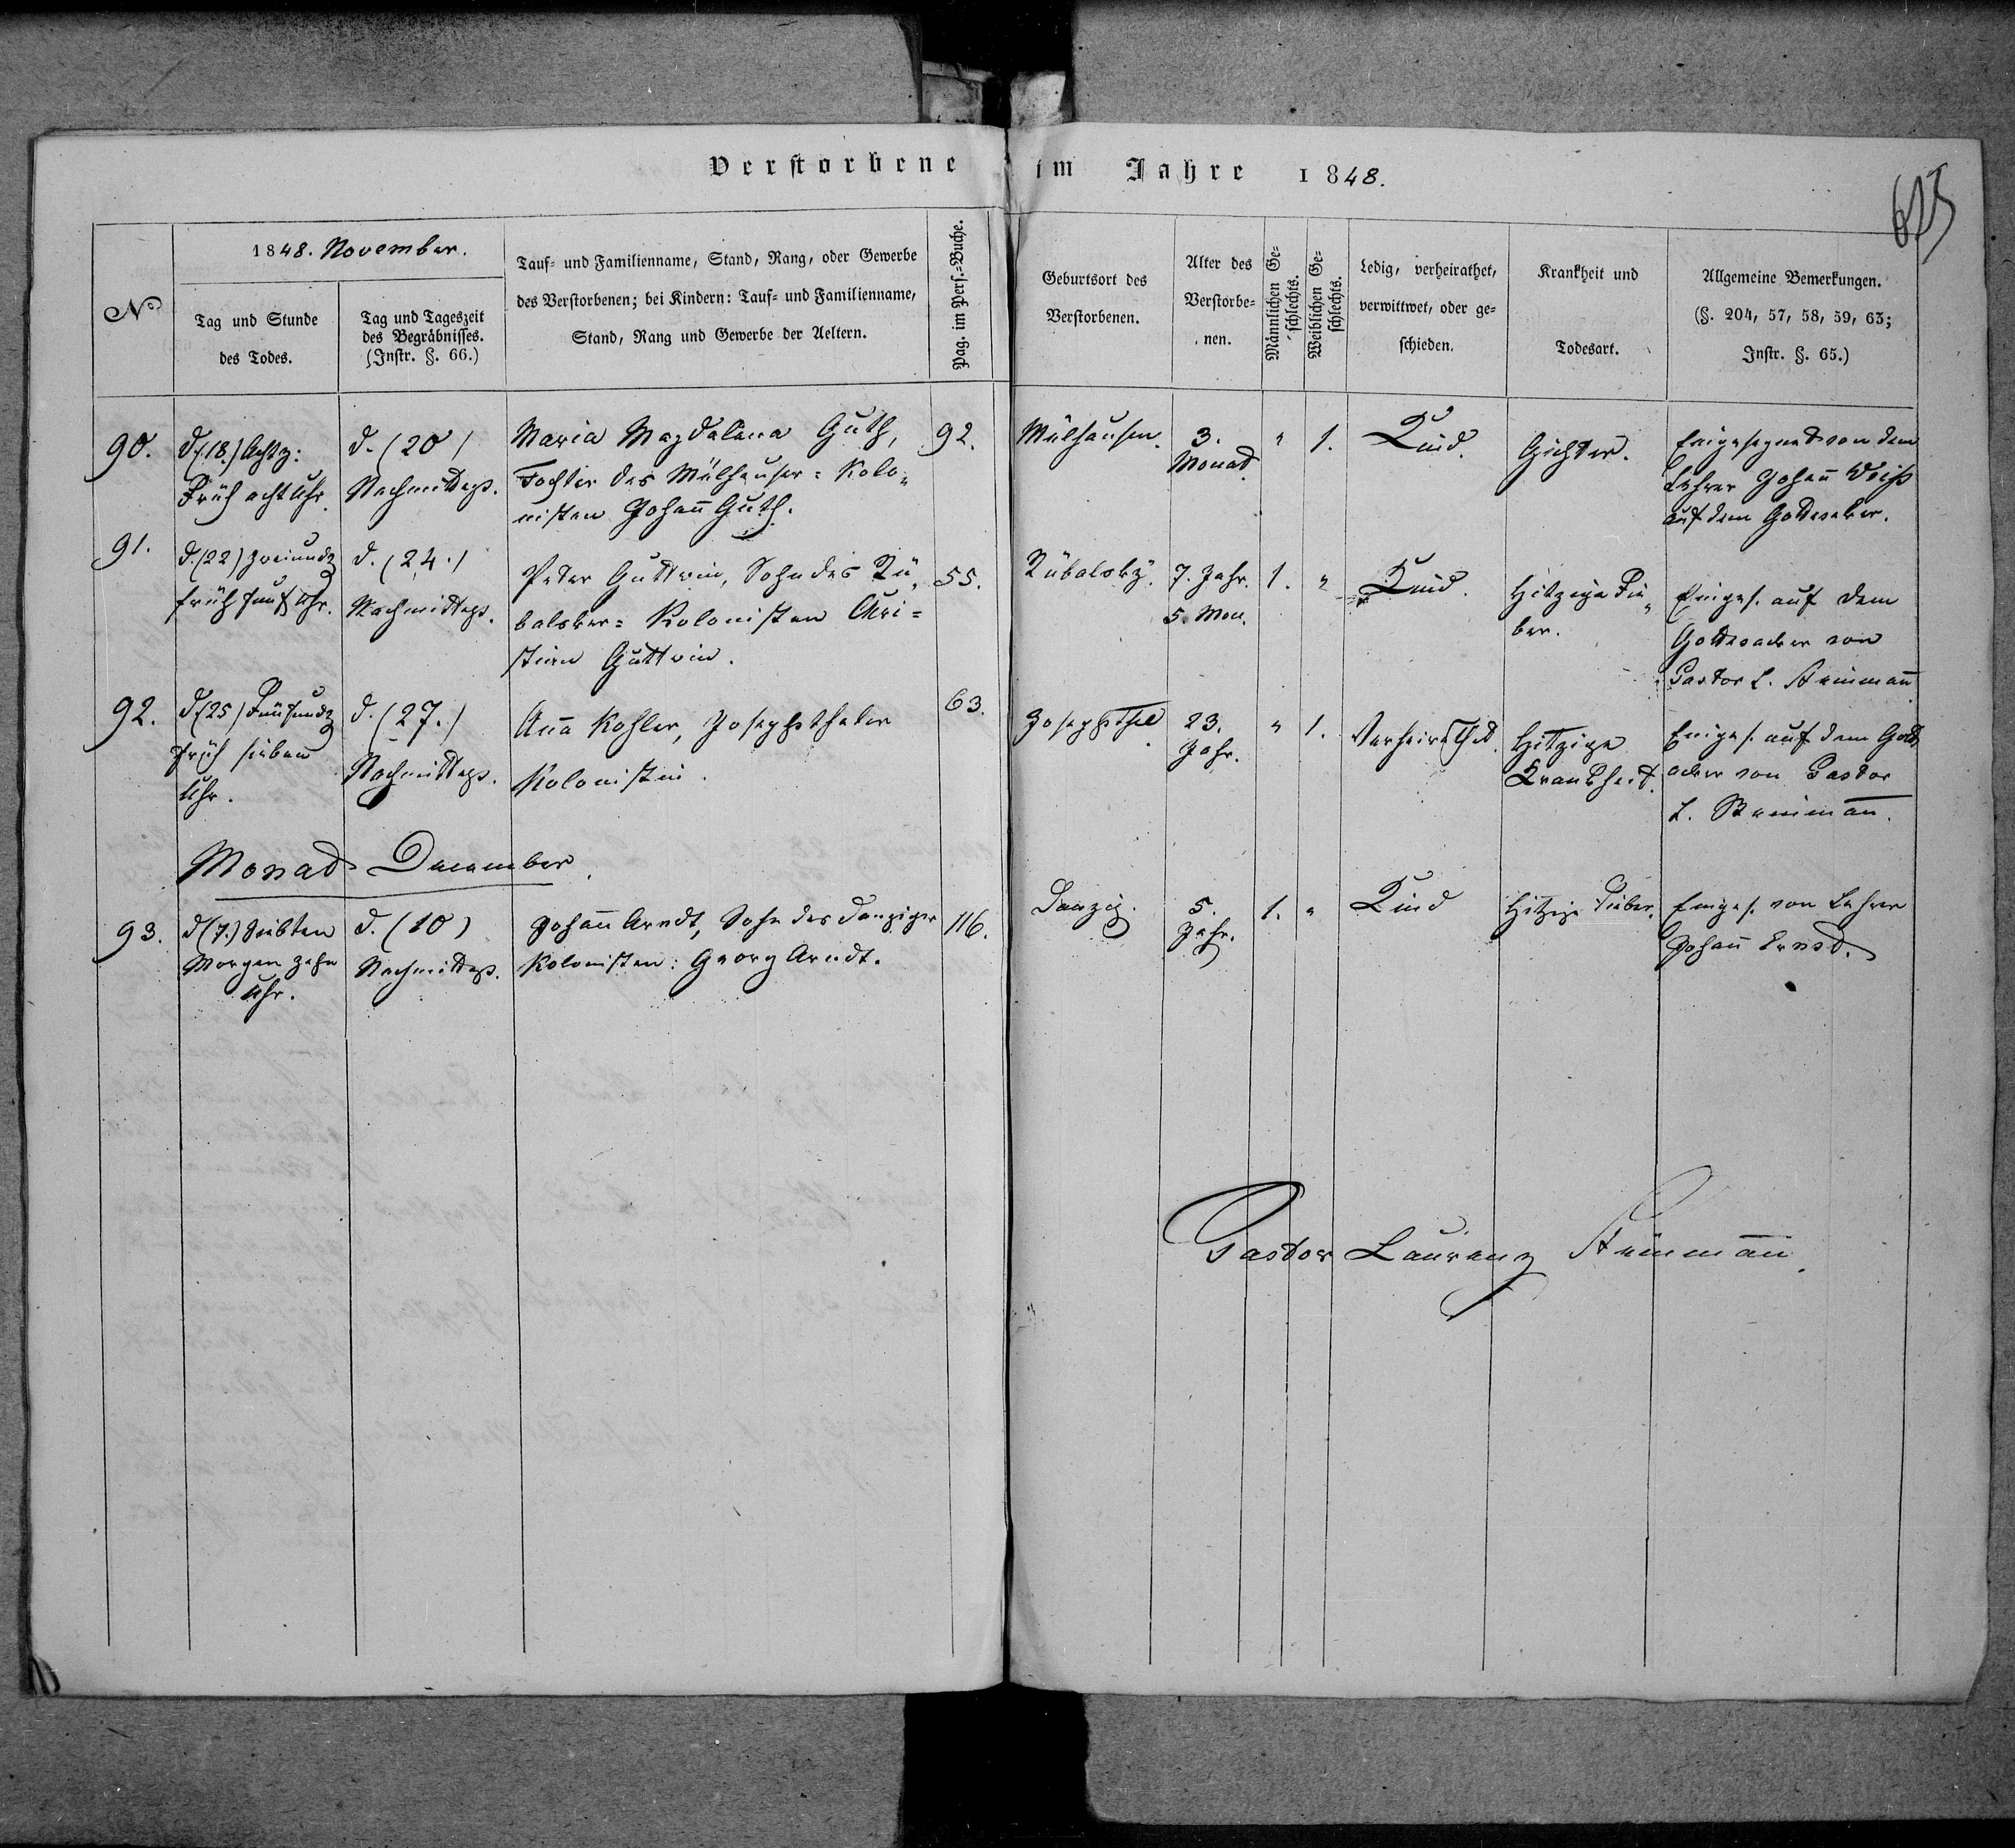 Verstorbene im Jahre 1848.
625
No
1848. November.
Tag und Stunde
des Todes.
Tag und Tageszeit
des Begräbnisses.
(Instr. §. 66.)
Tauf- und Familienname, Stand, Rang, oder Gewerbe
des Verstorbenen; bei Kindern: Tauf- und Familienname,
Stand, Rang und Gewerbe der Aeltern.
Pag. im Pers.-Buche.
Geburtsort des
Verstorbenen.
Alter des
Verstorbe-
nen.
Männlichen Ge-
schlechts.
Weiblichen Ge-
schlechts.
Ledig, verheirathet,
verwittwet, oder ge-
schieden.
Krankheit und
Todesart.
Allgemeine Bemerkungen.
(§. 204, 57, 58, 59, 63;
Instr. §. 65.)
90.
d. (18.) Achtz:
Früh acht Uhr.
d. (20)
Nachmittags.
Maria Magdalena Guth,
Tochter des Mülhauser= Kolo„
nisten Johañ Guth.
92.
Mülhausen.
3.
Monad.
"
1.
Kind.
Gichter.
Eingesegnet von dem
Lehrer Johañ Weiß
auf dem Gottesaker.
91.
d. (22) zweiundz
früh fünf Uhr.
d. (24.)
Nachmittags.
Peter Guttwin, Sohn des Rü„
balsker= Kolonisten Chri=
stian Guttwin.
55.
Rübalsky.
7. Jahr.
5. Mon.
1.
"
Kind.
Hitzige Fie„
ber.
Einges. auf dem
Gottesacker von
Pastor L. Steinmañ
92.
d. (25) Fünfundz
früh sieben
Uhr.
d. (27.)
Nachmittags.
Aña Kohler, Josephsthaler
Kolonistin.
63.
Josephsthl.
23.
Jahr.
"
1.
Verheirathet.
Hitzige
Krankheit.
Einges. auf dem Gotts
acker von Pastor
L. Steinmañ.
Monad December.
93.
d (7.) Siebten
Morgen zehn
Uhr.
d. (10)
Nachmittags.
Johañ Arndt, Sohn des Danziger
Kolonisten: Georg Arndt.
116.
Danzig.
5.
Jahr.
1.
"
Kind
Hitzige Fieber.
Einges. von Lehrer
Johañ Ernst.
Pastor Laurenz Steinmañ.